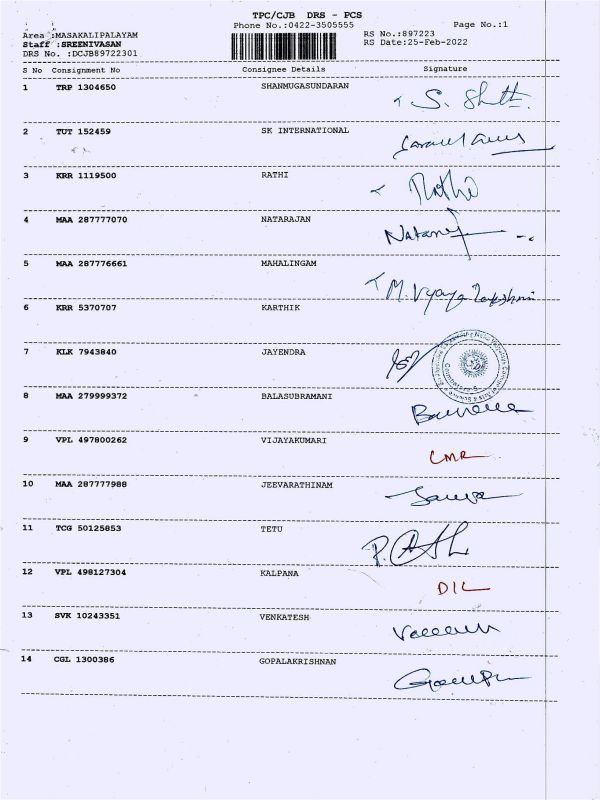 TPC/CJB DRS - PCS
Phone No.:0422-3505555 Page No.:1
Area :MASAKALIPALAYAM RS No.:897223
Staff :SREENIVASAN RS Date:25-Feb-2022
DRS No. :DCJB89722301
S No Consignment No Consignee Details Signature
1 TRP 1304650 SHANMUGASUNDARAN
S.
2 TUT 152459 SK INTERNATIONAL
3 KRR 1119500 RATHI
Rathi
4 MAA 287777070 NATARAJAN
5 MAA 287776661 MAHALINGAM
M.
6 KRR 5370707 KARTHIK
7 KLK 7943840 JAYENDRA
8 MAA 279999372 BALASUBRAMANI
9 VPL 497800262 VIJAYAKUMARI
CMR
10 MAA 287777988 JEEVARATHINAM
11 TCG 50125853 TETU
P.
12 VPL 498127304 KALPANA
DIL
13 SVK 10243351 VENKATESH
14 CGL 1300386 GOPALAKRISHNAN